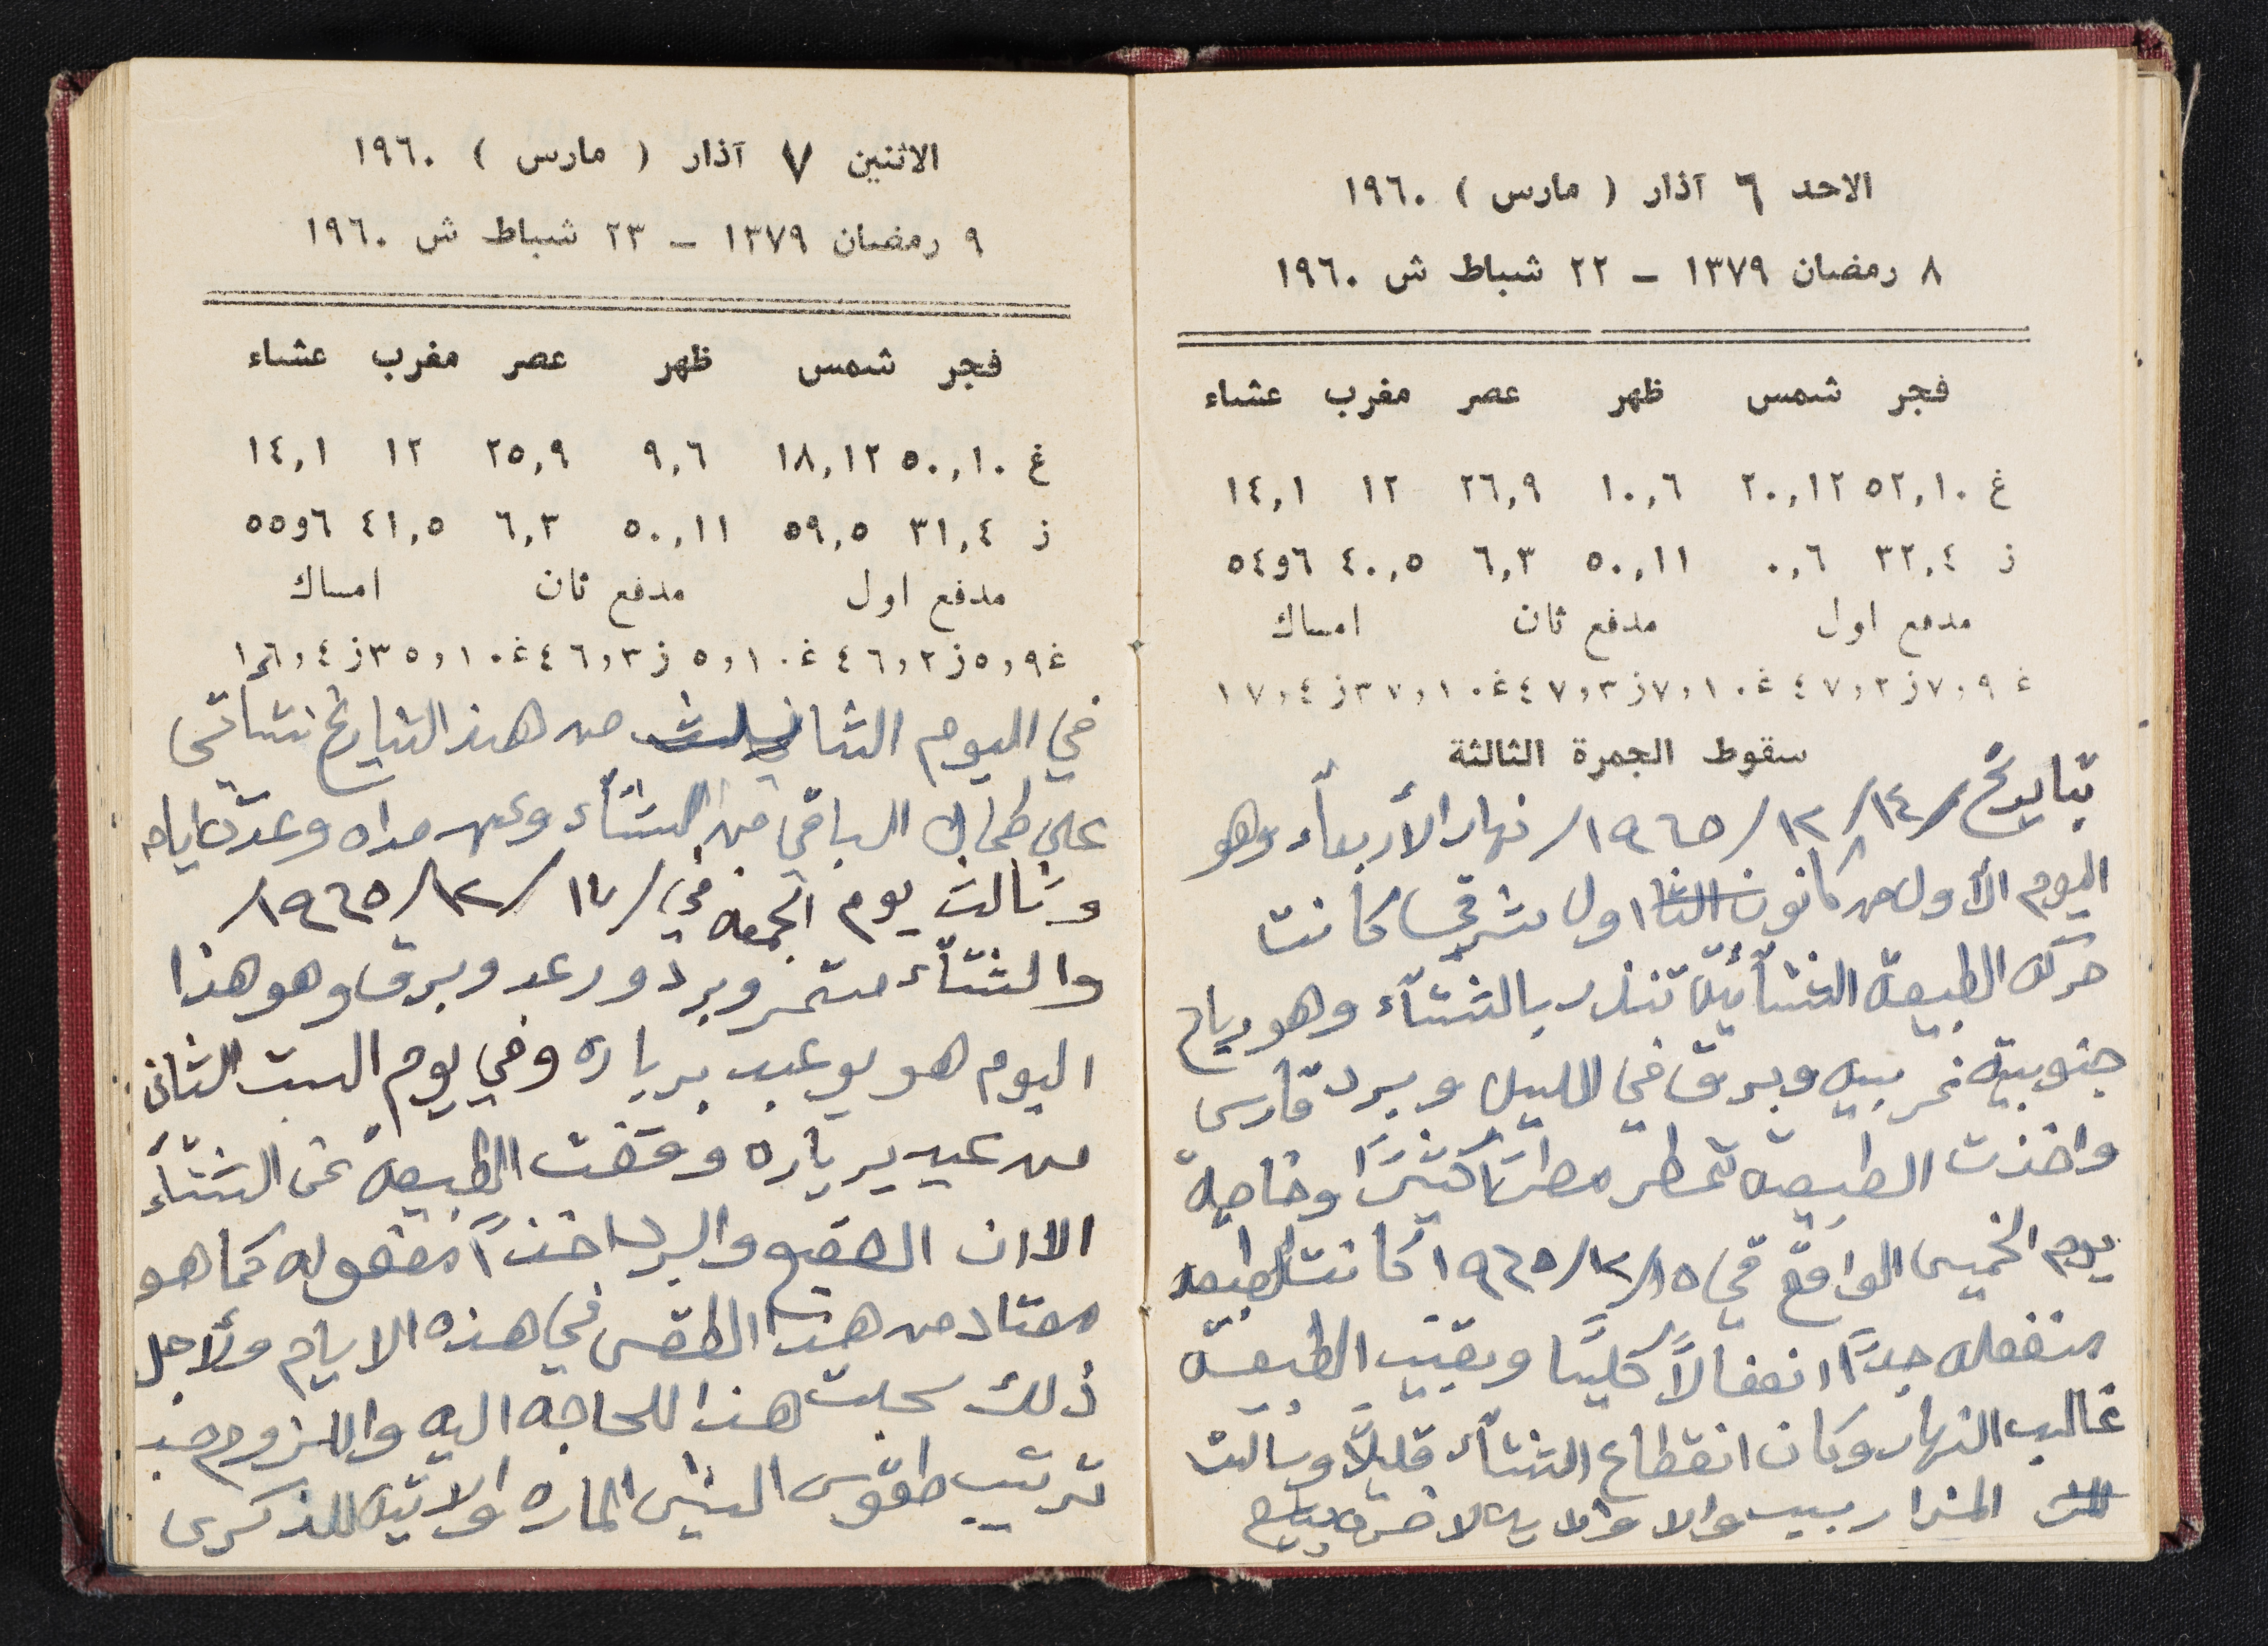 الاحد ٦ آذار ( مارس ) ١٩٦٠
٨ رمضان ١٣٧٩ – ٢٢ شباط ش ١٩٦٠
فجر شمس ظهر عصر مغرب عشاء
غ ٥٢,١٠ ٢٠,١٢ ١٠,٦ ٢٦,٩ ١٢ ١٤,١
ز ٣٢,٤ ٠,٦ ٥٠,١١ ٦,٣ ٤٠,٥ ٥٤و٦
مدفع اول مدفع ثان امساك
غ ٧,٩ز ٤٧,٢ غ ٧,١٠ز ٤٧,٣غ ٣٧,١٠ز ١٧,٤
سقوط الجمرة الثالثة
بتاريخ /١٤/ ١٢/ ١٩٦٥/ نهار الأربعاء وهو
اليوم الأول من كانون الثا اول شرقي كانت
حركة الطبيعة الشتائية تنذر بالشتاء وهو رياح
جنوبية غربيه وبرق في الليل وبرد قارس
واخذت الطبيعه تمطر مطراً كثيراً وخاصة
يوم الخميس الواقع في ١٥/ ١٢/ ١٩٦٥ كانت الطبيعه
منفعله جداً انفعالاً كليا وبقيت الطبيعه
غالب النهار وكان انقطاع الشتاء قليلاً وسالت
المزاريب
الاثنين ٧ آذار ( مارس ) ١٩٦٠
٩ رمضان ١٣٧٩ – ٢٣ شباط ش ١٩٦٠
فجر شمس ظهر عصر مغرب عشاء
غ ٥٠,١٠ ١٨,١٢ ٩,٦ ٢٥,٩ ١٢ ١٤,١
ز ٣١,٤ ٥٩,٥ ٥٠,١١ ٦,٣ ٤١,٥ ٥٥و٦
مدفع اول مدفع ثان امساك
غ ٥,٩ز ٤٦,٢ غ ٥,١٠ ز ٤٦,٣غ ٣٥,١٠ز ١٦,٤
في اليوم الثاني من هذا التاريخ نتساقى
على الباقي من الشتاء وعن مداه وعدة ايام
وثالث يوم الجمعه في /١٧/ ١٢/ ١٩٦٥/
والشتاء مستمر وبرد ورعد وبرق وهو هذا
اليوم هو يو عيد بربارة وفي يوم السبت الثاني
من عيد بربارة وقفت الطبيعة عن الشتاء
الا ان الصقيع والبرد اخذاً مفعوله كما هو
معتاد من هذا الطقس في هذه الايام ولأجل
ذلك سجلت هذا للحاجه اليه واللزوم
ترتيب طقوس السنين الماره والاتيه للذكرى